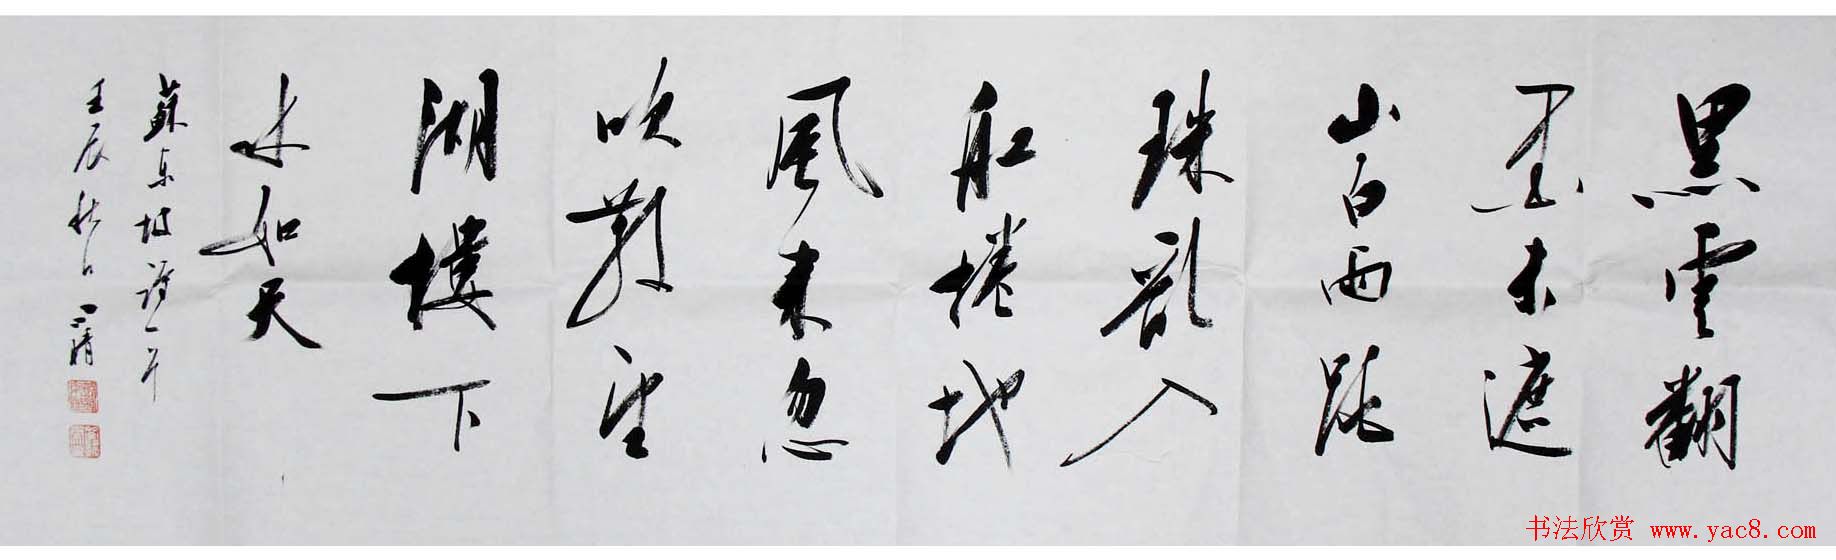 黑雲翻
墨未遮
山白雨跳
珠亂入
舡捲地
風来忽
吹散望
湖樓下
水如天
蘇东坡詩一首
壬辰秋日
书法欣赏 www.yac8.com